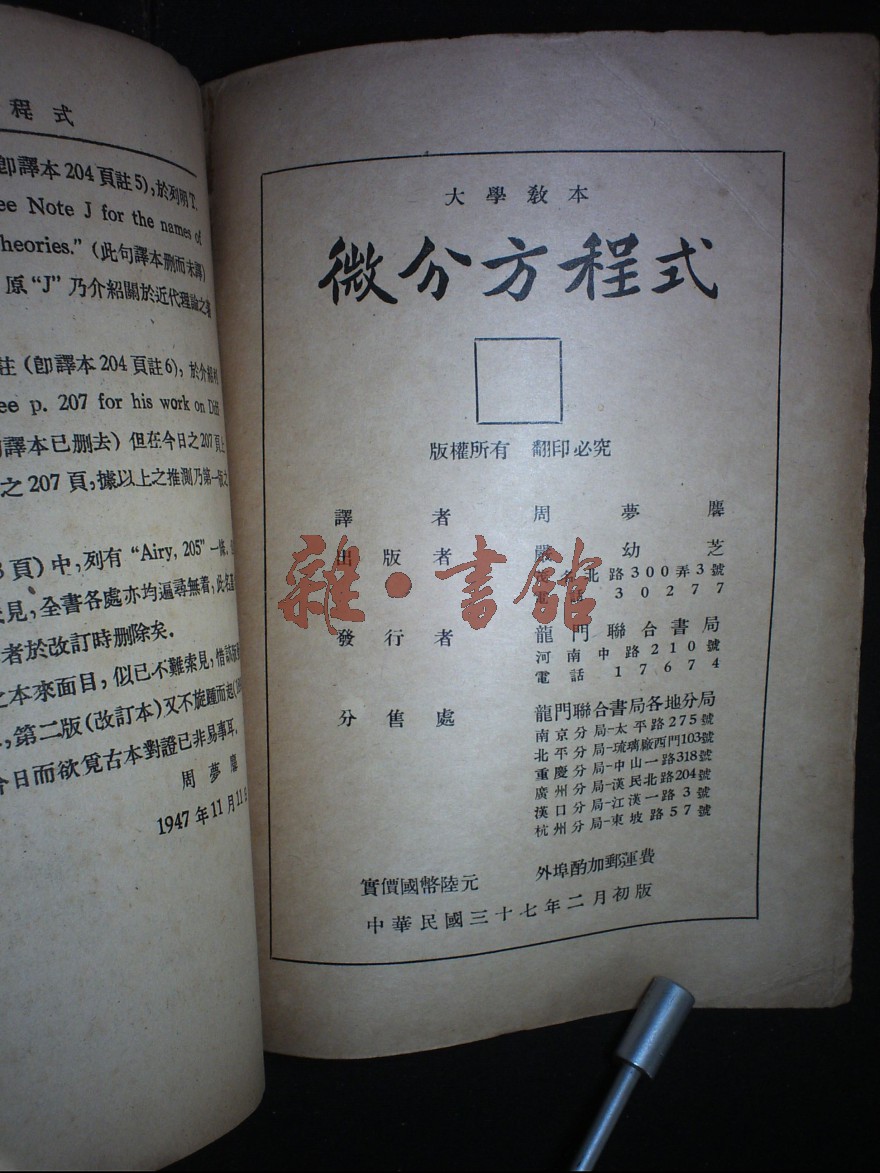 程式
卽譯本204頁註5),於列明T.
ee Note J for the names of
heories."(此句譯本删而未譯)
原"J"乃介紹關於近代理論之書
註(卽譯本204頁註6),於介紹
ee p. 207 for his work on Diff
譯本已删去)但在今日之207頁上
之207頁,據以上之推測乃第一版之
頁)中,列有"Airy, 205"一條,
見,全書各處亦均遍尋無着,此名
者於改訂時删除矣.
之本來面目,似已不難索見,惜
,第二版(改訂本)又不旋踵而起
今日而欲覓古本對證已非易事耳.
周夢麐
1947年11月11
大學敎本
微分方程式
版權所有 翻印必究
譯者 周夢麐
出版者 嚴幼芝
北路300弄3號
電話 30277
發行者 龍門聯合書局
河南中路210號
電話 17674
分售處 龍門聯合書局各地分局
南京分局-太平路275號
北平分局-琉璃廠西門103號
重慶分局-中山一路318號
廣州分局-漢民北路204號
漢口分局-江漢一路3號
杭州分局-東坡路57號
實價國幣陸元 外埠酌加郵運費
中華民國三十七年二月初版
雜·書館